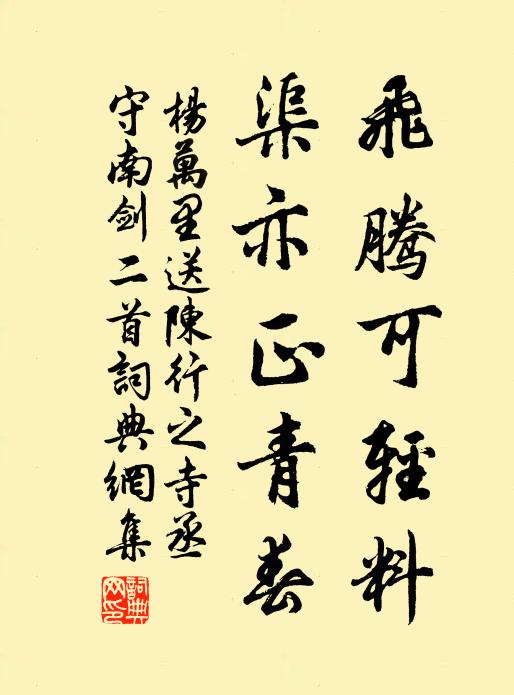 飛騰可輕料
渠亦正青春
楊萬里送陳行之寺丞
守南劍二首詞典網集